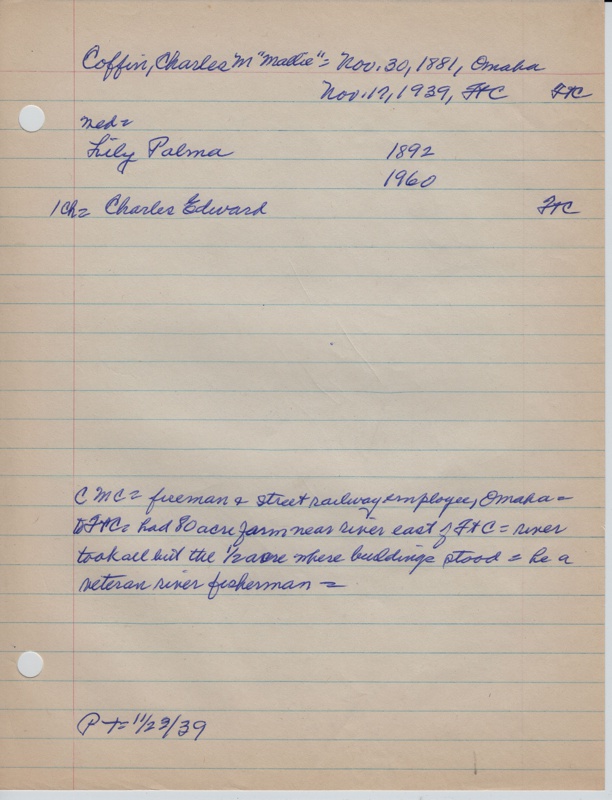 Coffin, Charles M "Mattie" = Nov. 30, 1881, Omaha
Nov. 17, 1939, FtC FtC
med =
Lily Palma 1892
1960
1 ch = Charles Edward FtC
C M C = fireman & street railway employee, Omaha =
to FtC = had 80 acre farm near river east of FtC = river
took all but the 1/2 acre where buildings stood = he a
veteran river fisherman =
P T = 11/23/39